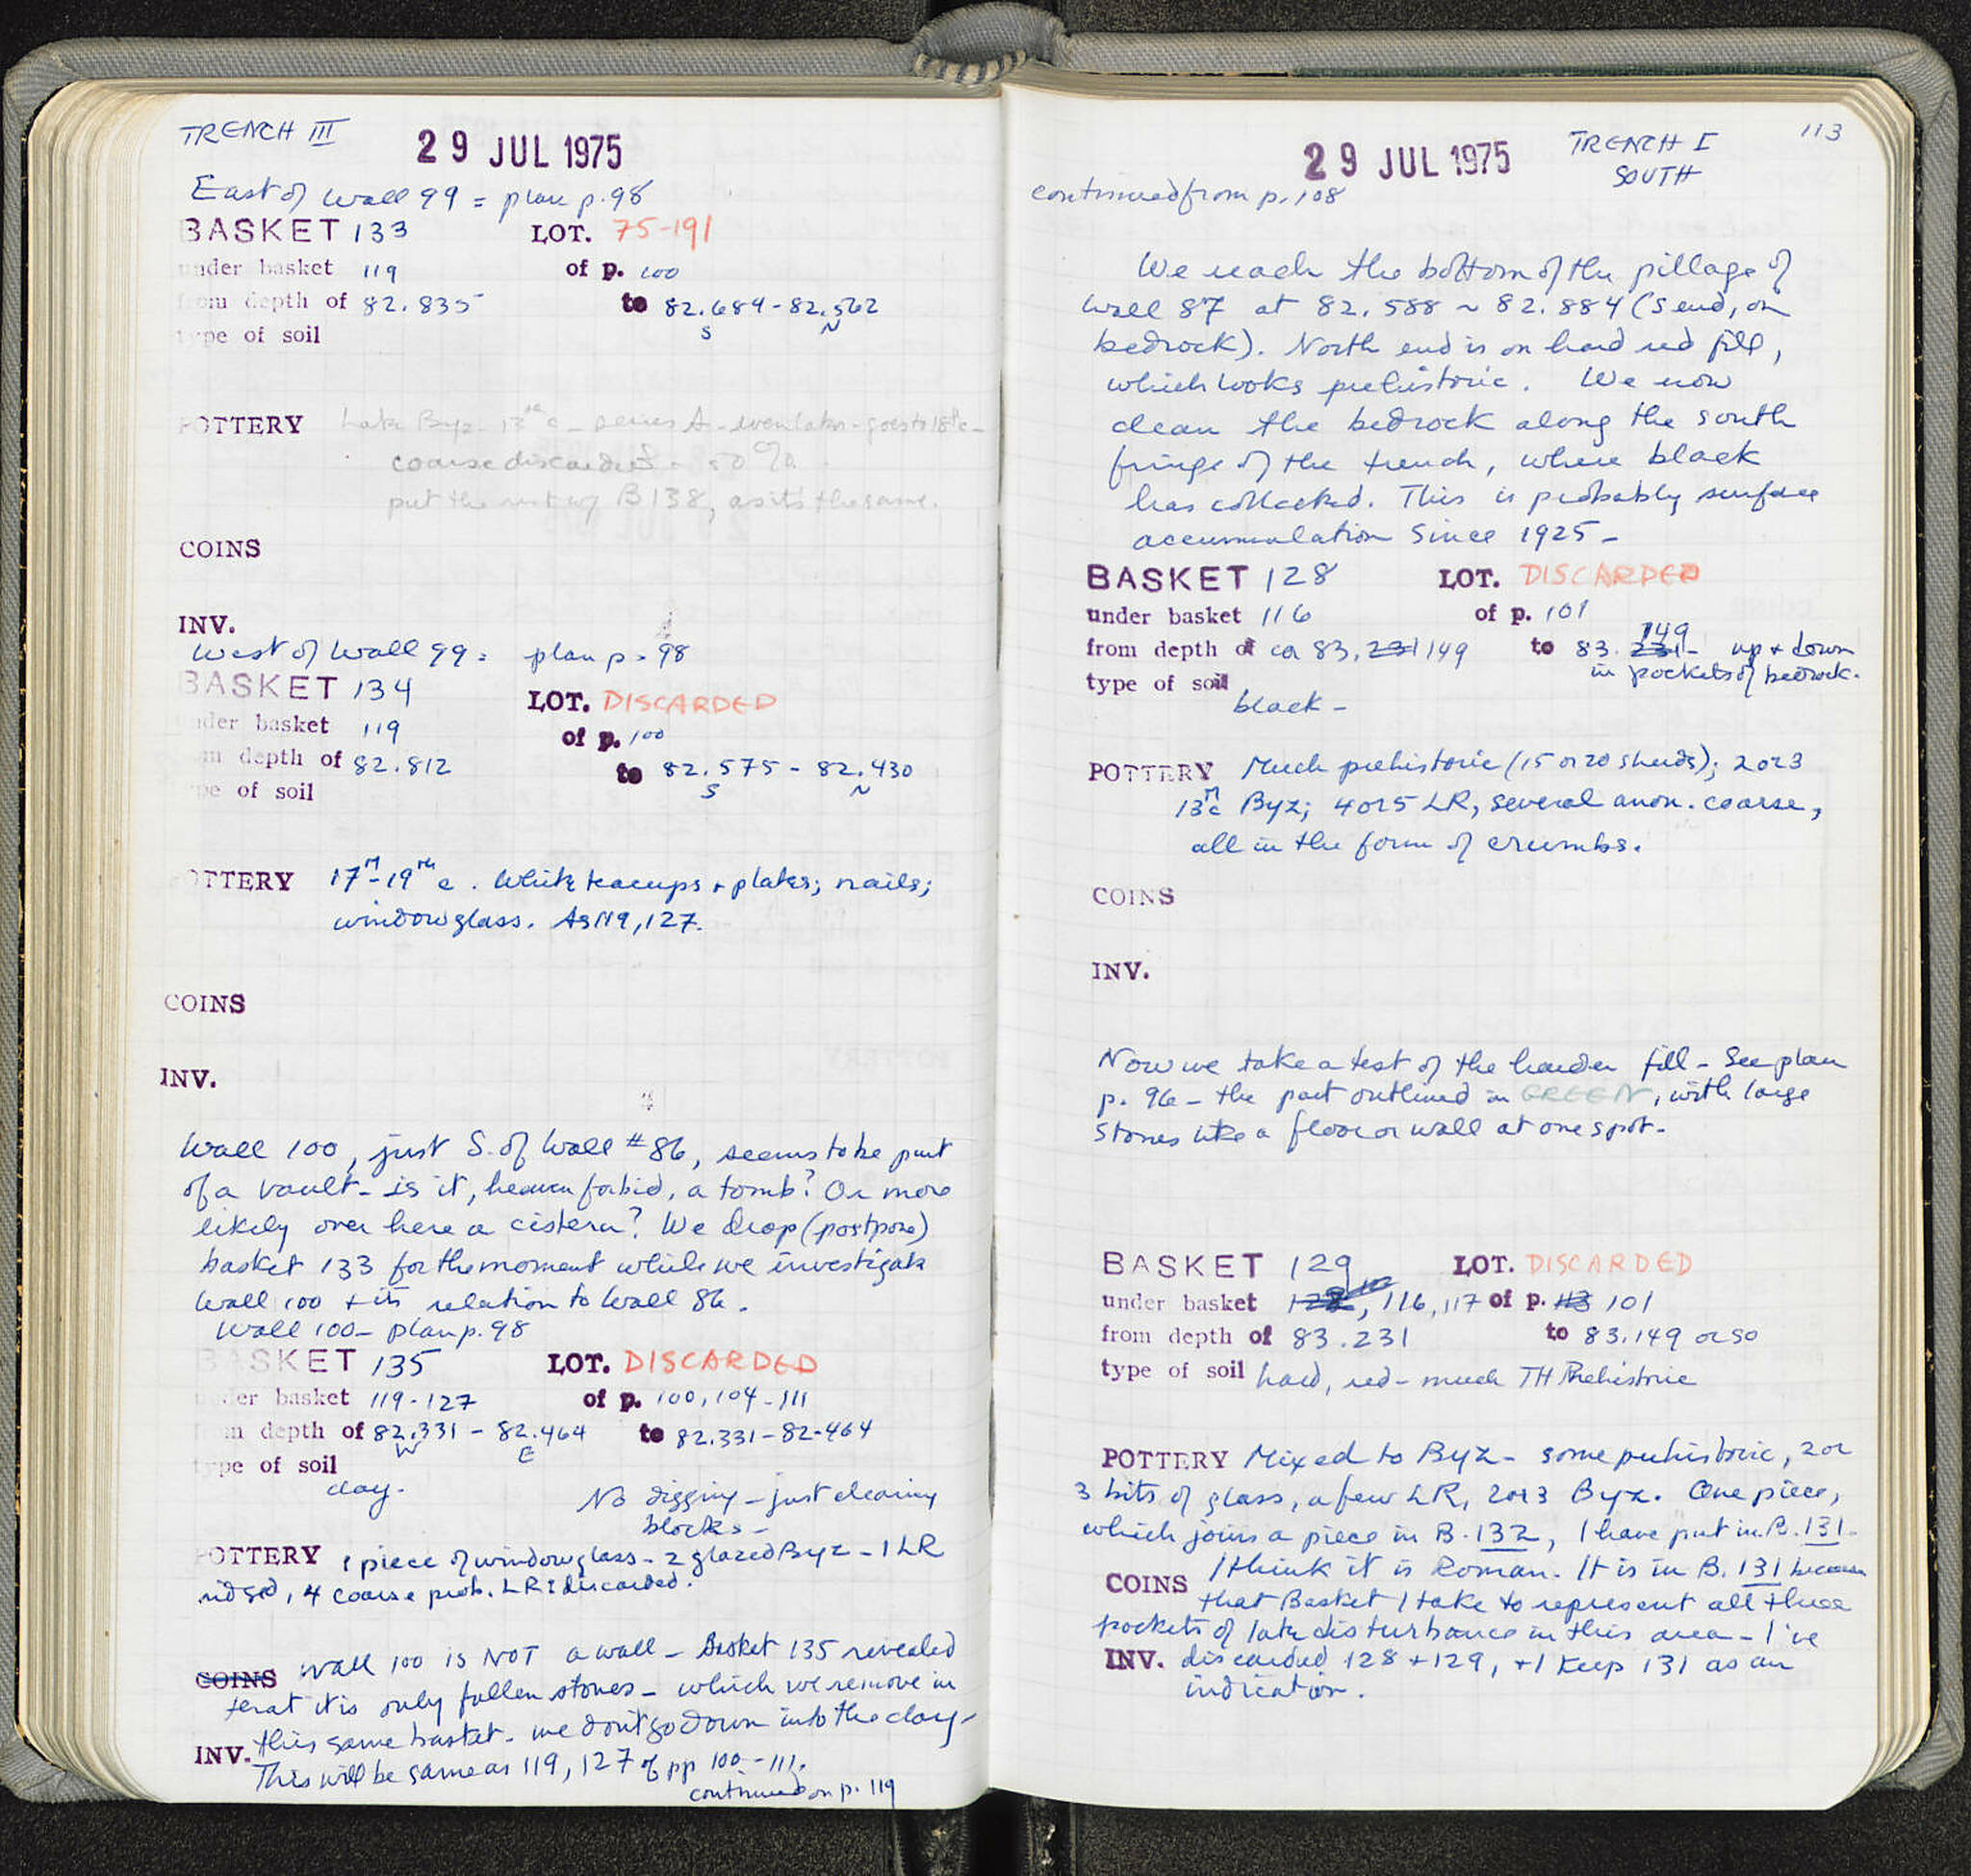 TRENCH III
29 JUL 1975
East of Wall 99 = plan p. 98
BASKET 133 LOT. 75-191
under basket 119 of p. 100
from depth of 82.835 to 82.689-82.562
S N
type of soil
POTTERY Late Byz - 13th c - series A - even later - goes to 18th c -
coarse discarded - 50%
put the rest w/ B 138, as it's the same.
COINS
INV.
West of Wall 99: plan p. 98
BASKET 134 LOT. DISCARDED
under basket 119 of p. 100
from depth of 82.812 to 82.575 - 82.430
S N
type of soil
POTTERY 17th-19th c. White teacups + plates; nails;
window glass. As 119, 127.
COINS
INV.
Wall 100, just S. of Wall #86, seems to be part
of a vault - is it, heaven forbid, a tomb? Or more
likely over here a cistern? We drop (postpone)
basket 133 for the moment while we investigate
Wall 100 + its relation to Wall 86.
Wall 100 - plan p. 98
BASKET 135 LOT. DISCARDED
under basket 119-127 of p. 100, 104-111
from depth of 82.331 - 82.464 to 82.331-82.464
W E
type of soil
clay.
No digging - just cleaning
blocks -
POTTERY 1 piece of window glass - 2 glazed Byz - 1 LR
ridged, 4 coarse prob. LR: discarded.
COINS Wall 100 is NOT a wall - Basket 135 revealed
that it is only fallen stones - which we remove in
this same basket - we don't go down into the clay -
INV. This will be same as 119, 127 of pp 100-111.
continued on p. 119
113
29 JUL 1975 TRENCH I
SOUTH
continued from p. 108
We reach the bottom of the pillage of
Wall 87 at 82.588 ~ 82.884 (S end, on
bedrock). North end is on hard red fill,
which looks prehistoric. We now
clean the bedrock along the south
fringe of the trench, where black
has collected. This is probably surface
accumulation since 1925 -
BASKET 128 LOT. DISCARDED
under basket 116 of p. 101
from depth of ca 83.231 149 to 83.231 149 - up + down
in pockets of bedrock.
type of soil
black -
POTTERY Much prehistoric (15 or 20 sherds); 2 or 3
13th c Byz; 4 or 5 LR, several anon. coarse,
all in the form of crumbs.
COINS
INV.
Now we take a test of the harder fill - See plan
p. 96 - the part outlined in GREEN, with large
stones like a floor or wall at one spot -
BASKET 129 LOT. DISCARDED
under basket 128, 116, 117 of p. 113 101
from depth of 83.231 to 83.149 or so
type of soil hard, red - much TH Prehistoric
POTTERY Mixed to Byz - some prehistoric, 2 or
3 bits of glass, a few LR, 2 or 3 Byz. One piece,
which joins a piece in B. 132, I have put in B. 131.
I think it is Roman. It is in B. 131 because
COINS that Basket I take to represent all three
pockets of late disturbance in this area - I've
INV. discarded 128 + 129, + I keep 131 as an
indication.